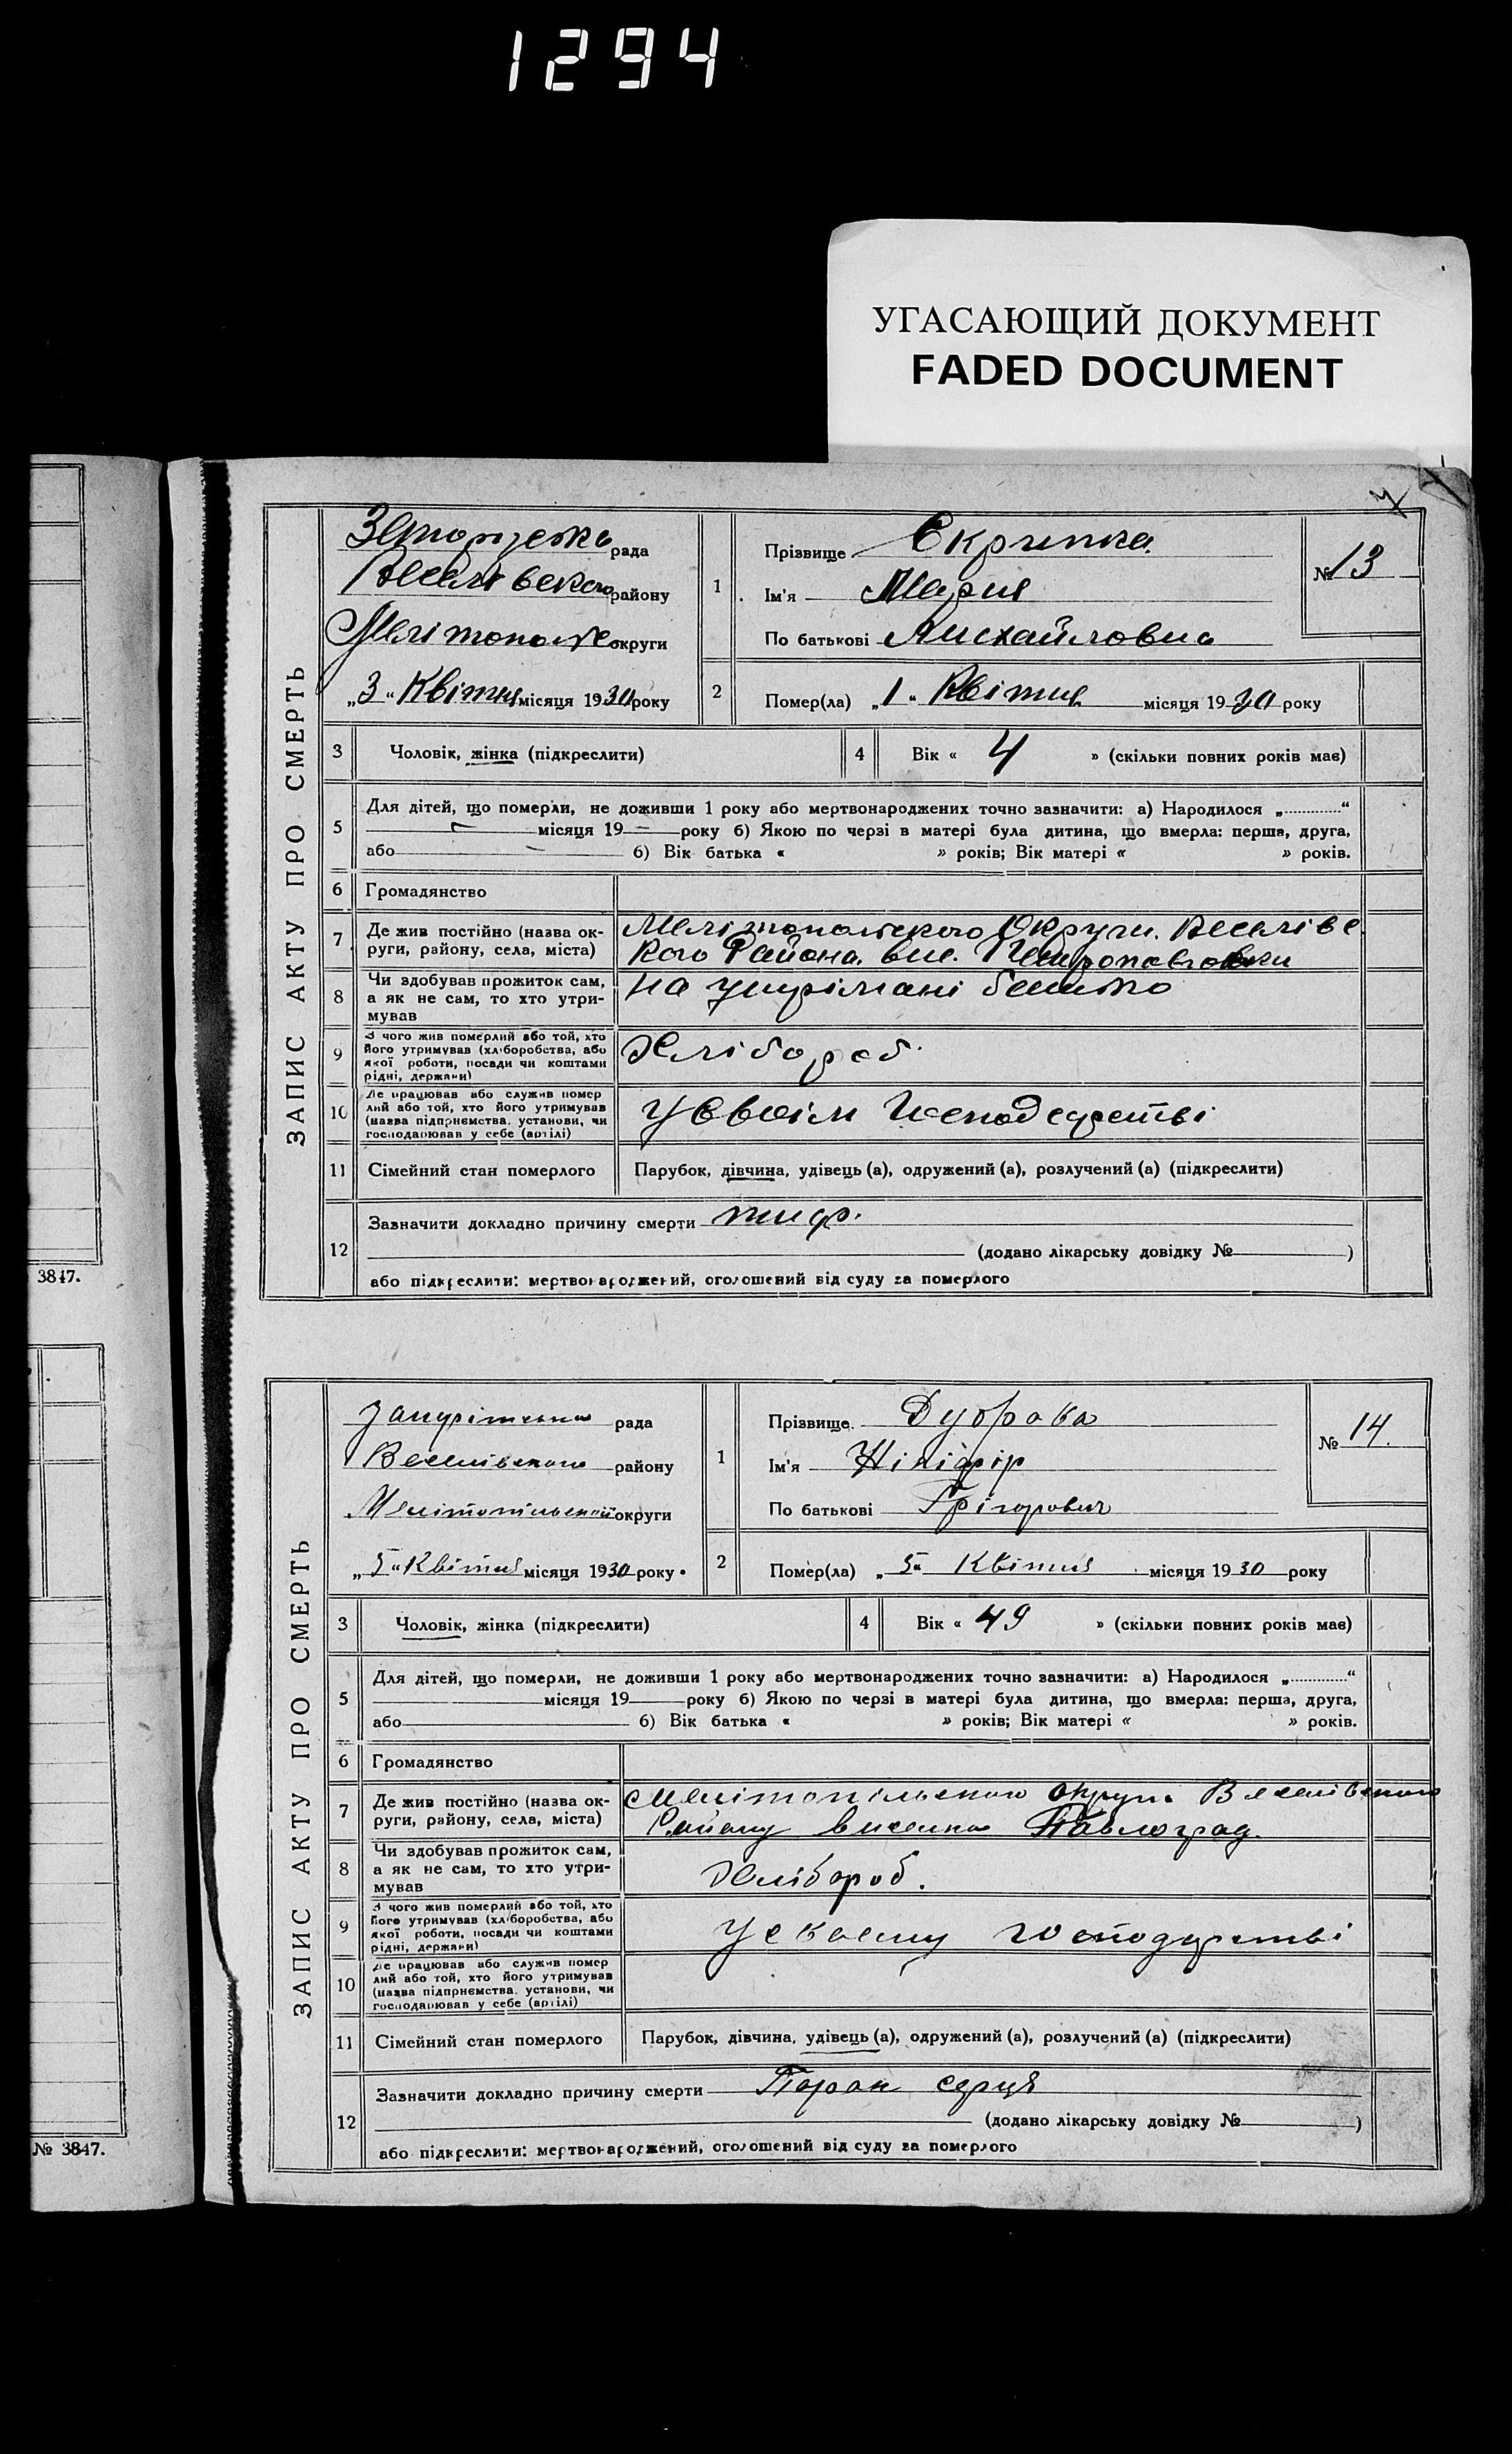 1294
УГАСАЮЩИЙ ДОКУМЕНТ
FADED DOCUMENT
ЗАПИС АКТУ ПРО СМЕРТЬ
рада
Веселівского району
округи
„3“ Квітня місяця 1930 року
1
Прізвище Скрипка
Ім'я Мария
По батькові Михайловна
№ 13
2
Помер(ла) „1“ Квітня місяця 1930 року
3 Чоловік, жінка (підкреслити)
4 Вік « 4 » (скільки повних років має)
5 Для дітей, що померли, не доживши 1 року або мертвонароджених точно зазначити: а) Народилося „ “
місяця 19 — року б) Якою по черзі в матері була дитина, що вмерла: перша, друга,
або б) Вік батька « » років; Вік матері « » років.
6 Громадянство
7 Де жив постійно (назва ок-
руги, району, села, міста)
Мелітопольского Округи. Веселівс
кого Района. вис. Петропавловки
8 Чи здобував прожиток сам,
а як не сам, то хто утри-
мував
на утрімані
9 З чого жив померлий або той, хто
його утримував (хліборобства, або
якої роботи, посади чи коштами
рідні, держави)
Хлібороб.
10 Де працював або служив помер
лий або той, хто його утримував
(назва підприємства, установи, чи
господарював у себе (артілі)
У Своім Господарстві
11 Сімейний стан померлого
Парубок, дівчина, удівець (а), одружений (а), розлучений (а) (підкреслити)
12 Зазначити докладно причину смерти тиф.
(додано лікарську довідку № )
або підкреслити: мертвонароджений, оголошений від суду за померлого
3847.
ЗАПИС АКТУ ПРО СМЕРТЬ
рада
Веселівського району
Мелітопільської округи
„5“ Квітня місяця 1930 року
1
Прізвище Дуброва
Ім'я Нікіфір
По батькові Грігорович
№ 14.
2
Помер(ла) „5“ Квітня місяця 1930 року
3 Чоловік, жінка (підкреслити)
4 Вік « 49 » (скільки повних років має)
5 Для дітей, що померли, не доживши 1 року або мертвонароджених точно зазначити: а) Народилося „ “
місяця 19 року б) Якою по черзі в матері була дитина, що вмерла: перша, друга,
або б) Вік батька « » років; Вік матері « » років.
6 Громадянство
7 Де жив постійно (назва ок-
руги, району, села, міста)
Мелітопільського округи Веселівського
Району виселка Павлоград.
8 Чи здобував прожиток сам,
а як не сам, то хто утри-
мував
Хлібороб.
9 З чого жив померлий або той, хто
його утримував (хліборобства, або
якої роботи, посади чи коштами
рідні, держави)
У своєму господарстві
10 Де працював або служив помер
лий або той, хто його утримував
(назва підприємства, установи, чи
господарював у себе (артілі)
11 Сімейний стан померлого
Парубок, дівчина, удівець (а), одружений (а), розлучений (а) (підкреслити)
12 Зазначити докладно причину смерти Порок серця
(додано лікарську довідку № )
або підкреслити: мертвонароджений, оголошений від суду за померлого
№ 3847.